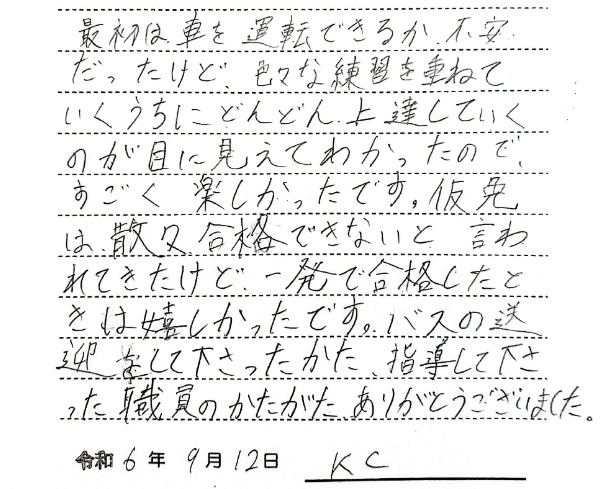 最初は車を運転できるか、不安
だったけど、色々な練習を重ねて
いくうちにどんどん上達していく
のが目に見えてわかったので、
すごく楽しかったです。仮免
は、散々合格できないと言わ
れてきたけど、一発で合格したと
きは嬉しかったです。バスの送
迎をして下さったかた、指導して下さ
った職員のかたがた、ありがとうございました。
令和6年9月12日 KC